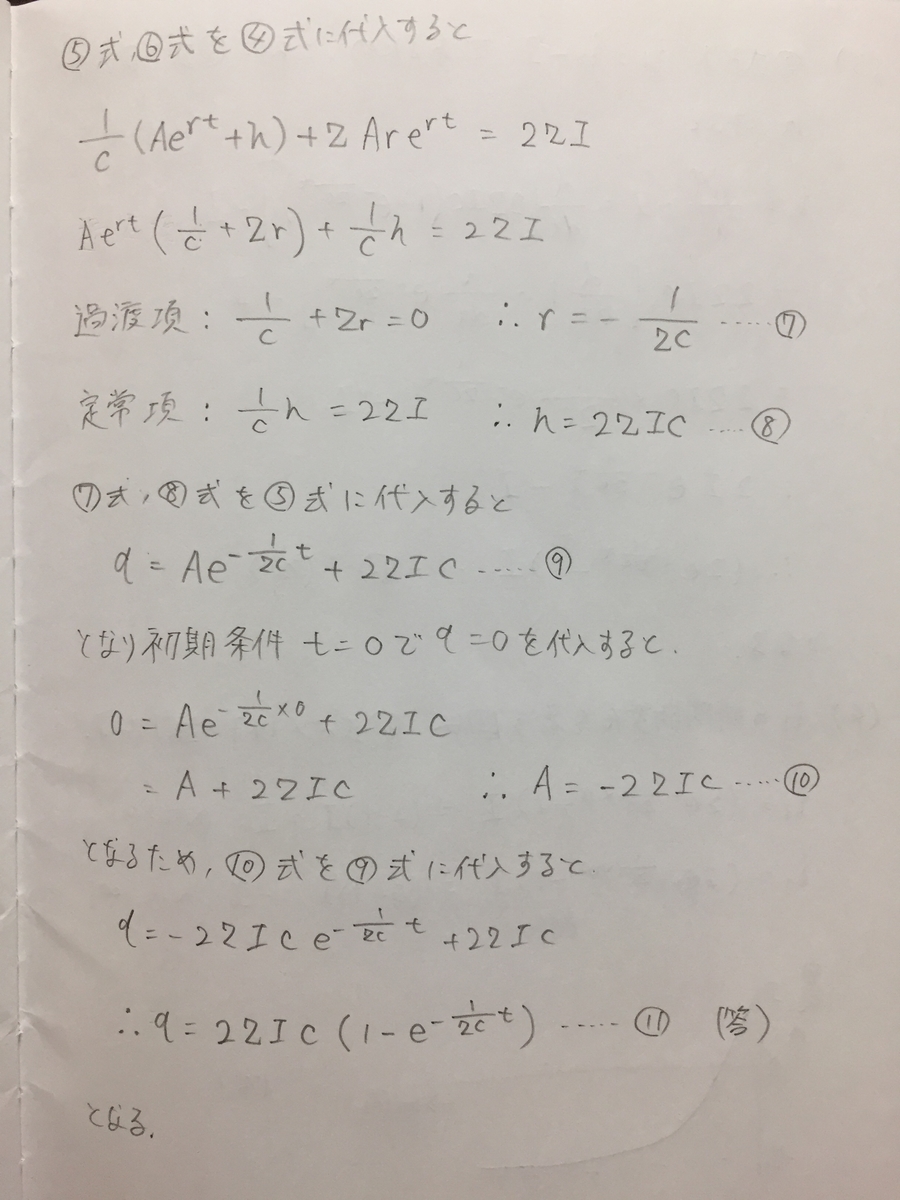 ⑤式,⑥式を④式に代入すると
1/C (Ae^{rt}+h)+Z Are^{rt} = 2ZI
Ae^{rt} (1/C + Zr) + 1/C h = 2ZI
過渡項: 1/C + Zr = 0 ∴ r = - 1/ZC ‥‥‥⑦
定常項: 1/C h = 2ZI ∴ h = 2ZIC ‥‥⑧
⑦式,⑧式を⑤式に代入すると
q = Ae^{-1/ZC t} + 2ZIC ‥‥‥⑨
となり初期条件 t=0で q=0を代入すると.
0 = Ae^{-1/ZC ×0} + 2ZIC
= A + 2ZIC ∴ A = -2ZIC ‥‥‥⑩
となるため, ⑩式を⑨式に代入すると.
q = -2ZIC e^{-1/ZC t} + 2ZIC
∴ q = 2ZIC (1-e^{-1/ZC t}) ‥‥‥ ⑪ (答)
となる.